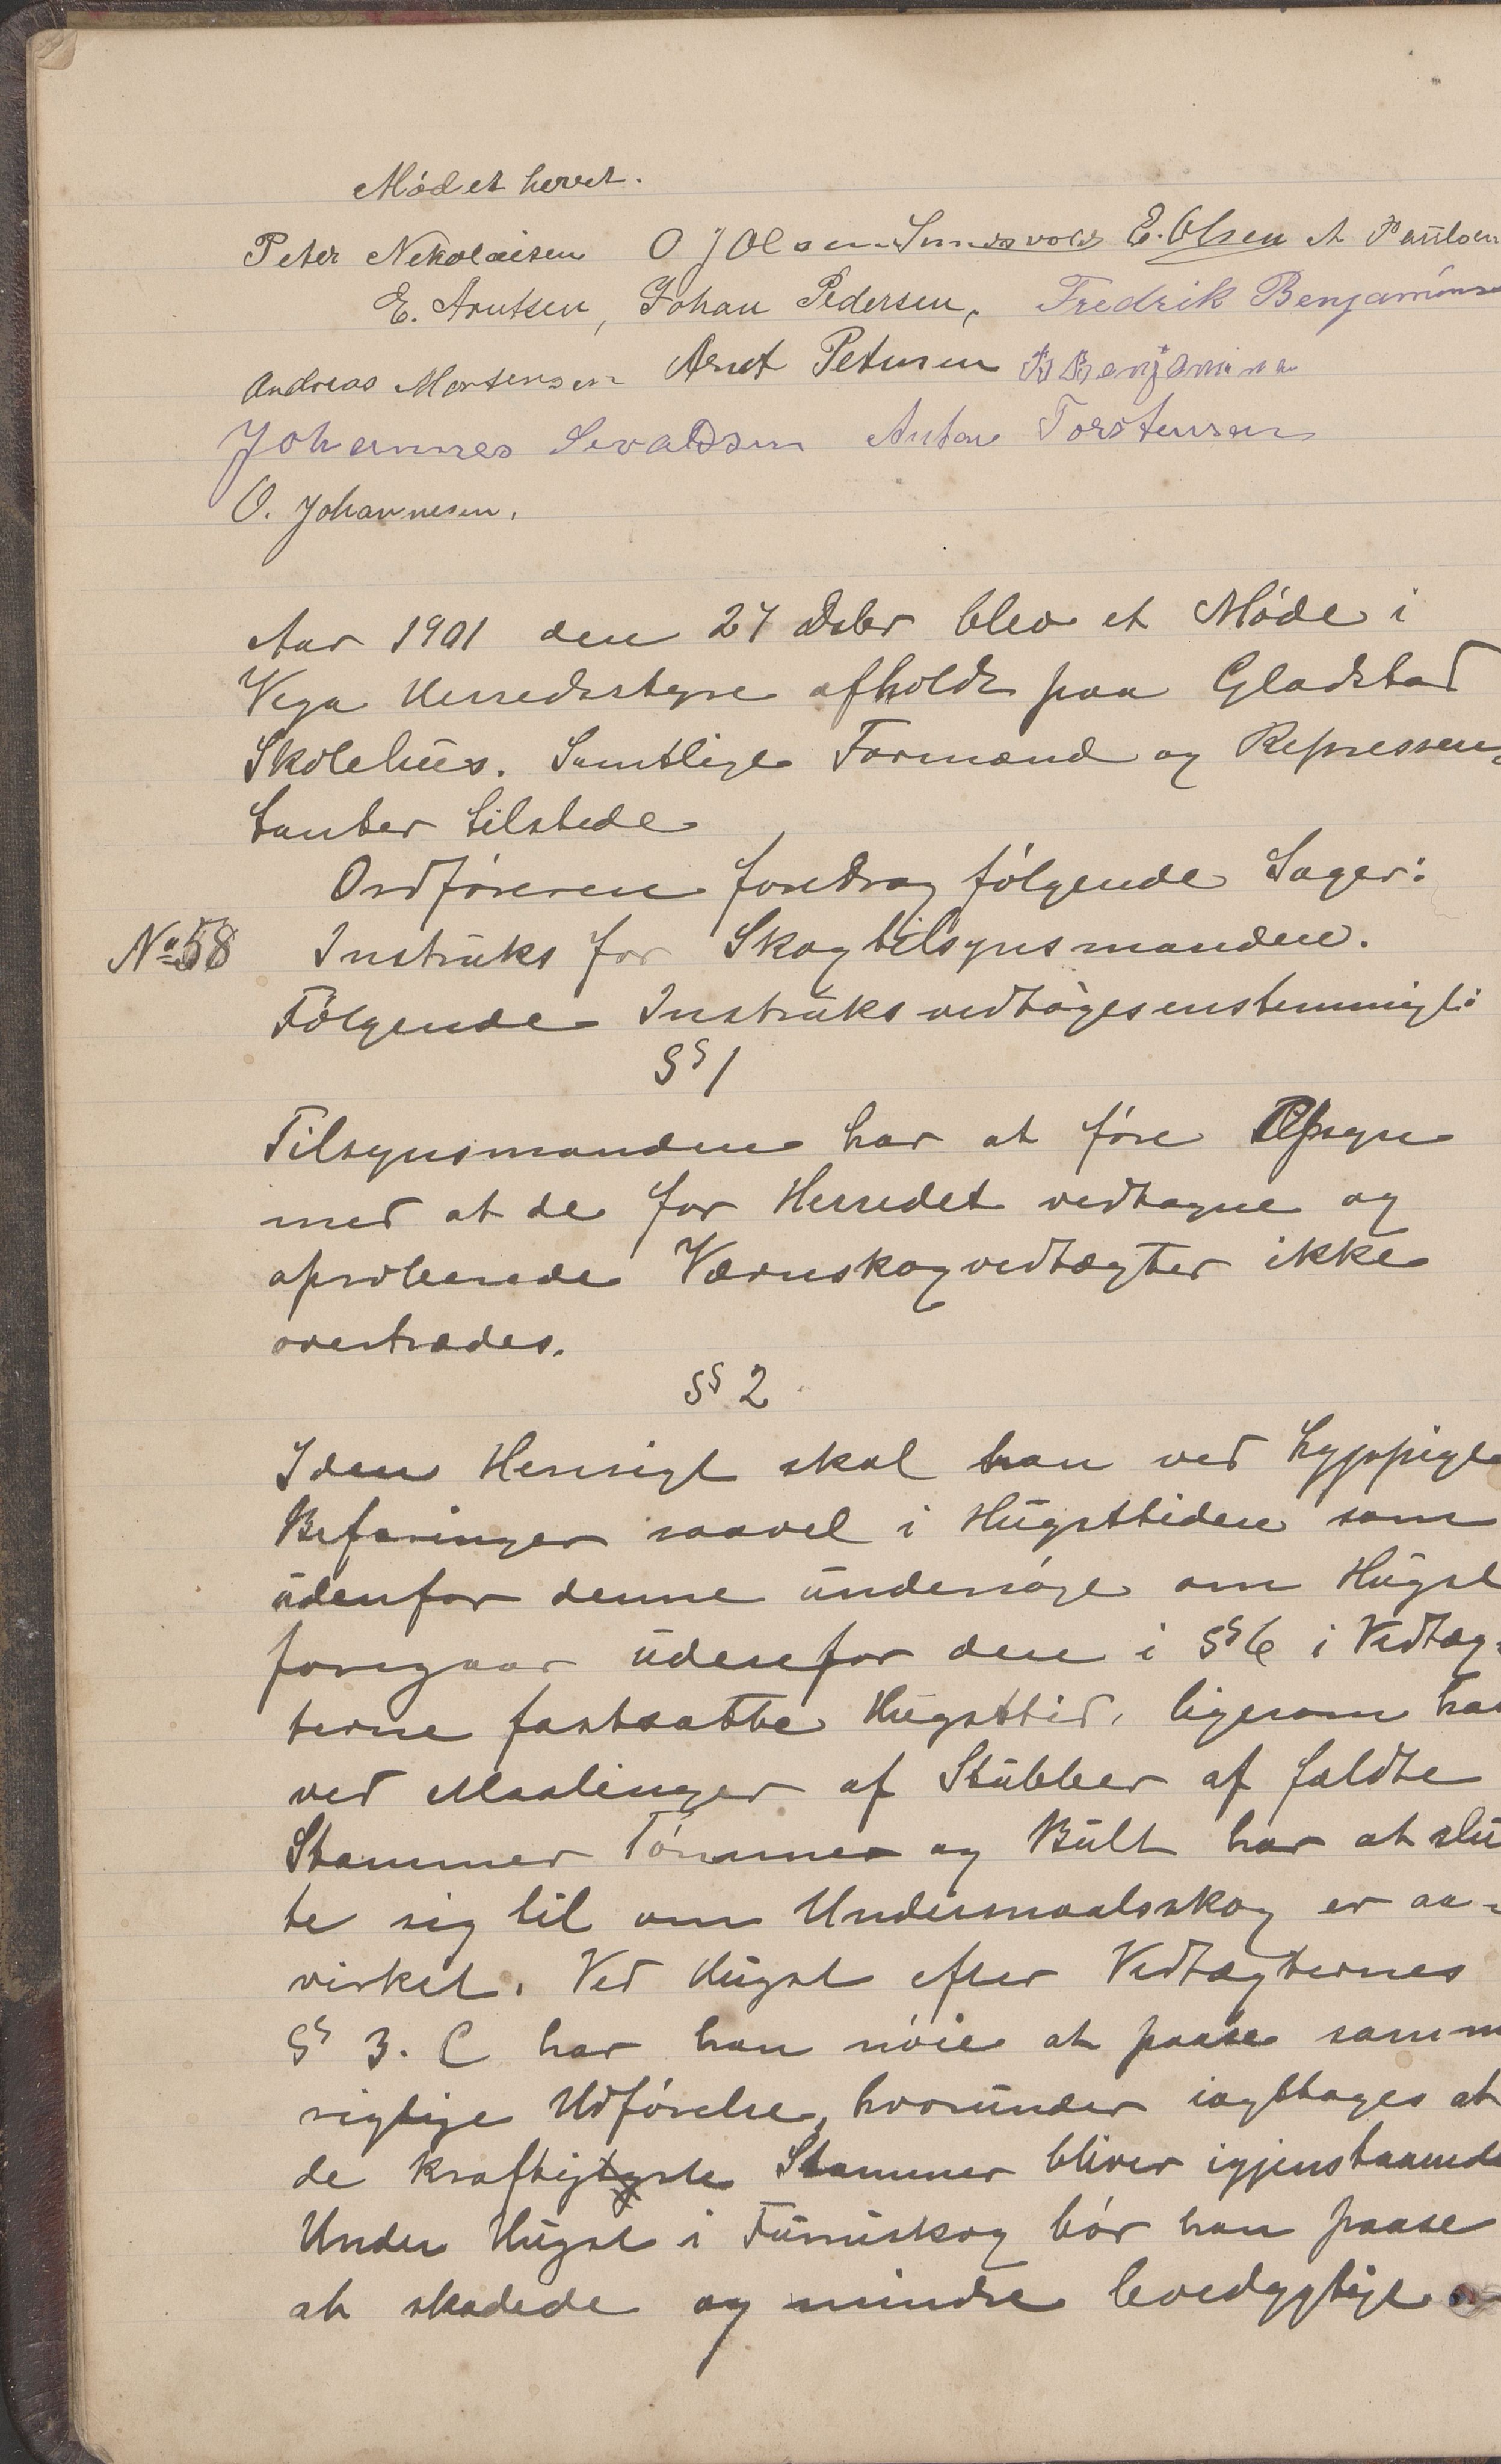 Mödet hevet.
Peter Nikolaisen O J Olsen Sundsvold E. Olsen A Paulsen
E. Arntsen, Johan Pedersen, Fredrik Benjamins
Andreas Mortensen Arnt Petersen B Benjaminsen
Johannes Sivaldsen Anton Torstensen
O. Johannesen.
Aar 1901 den 27 Dsbr blev et Möde i
Vega Herredsstyre afholdt paa Gladstad
Skolehus. Samtlige Formænd og Repressen-
tanter tilstede
Ordföreren foredrog fölgende Sager:
No 58 Instruks for Skogtilsynsmanden.
Fölgende Instruks vedtoges enstemmigt:
§§ 1
Tilsynsmanden har at före Opsyn
med at de for Herredet vedtagne og
aproberede Værnskogvedtægter ikke
overtrædes.
§§ 2
I den Hensigt skal han ved hyppige
Befaringer saavel i Hugsttiden som
udenfor denne undersöge om Hugst
foregaar udenfor den i §§ 6 i Vedtæg-
terne fastsatte Hugsttid, ligesom han
ved Maalinger af Stubber af fældte
Stammer Tömmer og Bult har at slu
te sig til om Undermaalsskog er aa-
virket. Ved Hugst efter Vedtægternes
§§ 3. C har han nöie at paase samm
rigtige Udförelse, hvorunder iagttages at
de kraftigste Stammer bliver igjenstaaende
Under Hugst i Furuskog bör han paase
at skadede og mindre levedygtige